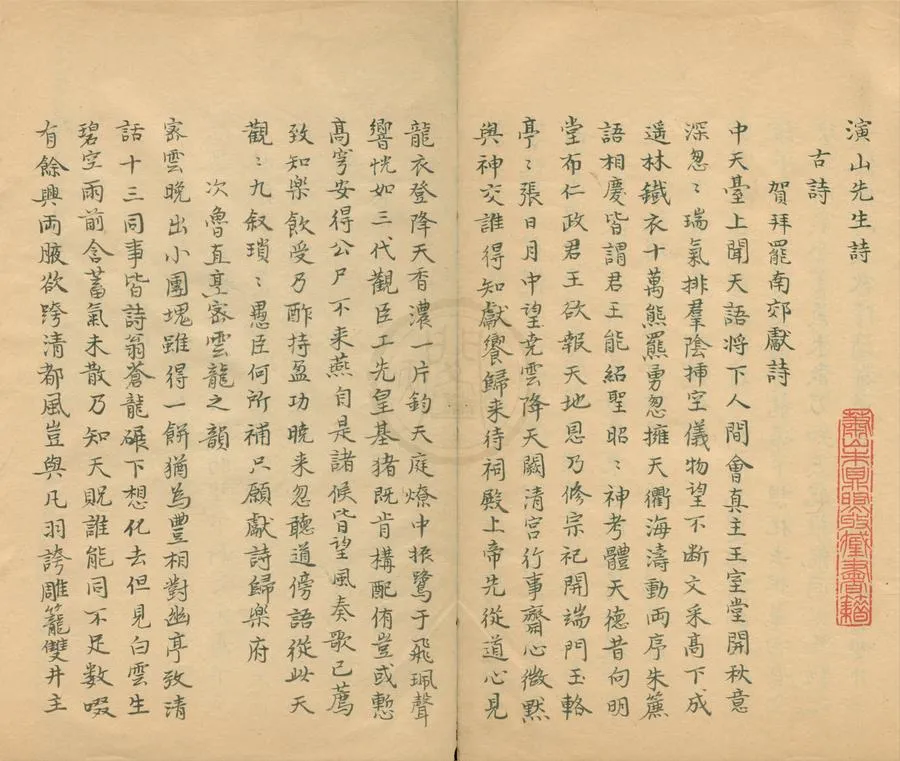 演山先生詩
古詩
賀拜罷南郊獻詩
中天臺上聞天語將下人間會真主王室堂開秋意
深忽〻瑞氣排羣陰揷空儀物望不斷文采高下成
遥林鐵衣十萬熊羆勇忽擁天衢海濤動両序朱簾
語相慶皆謂君王能紹聖昭〻神考體天德昔向明
堂布仁政君王欲報天地恩乃修宗祀開端門玉輅
亭〻張日月中望堯雲降天闕清宮行事齋心微黙
與神交誰得知獻饗歸来待祠殿上帝先從道心見
龍衣登降天香濃一片鈞天庭燎中振鷺于飛珮聲
響恍如三代觀臣工先皇基猪既肯構配侑豈或慙
髙穹安得公尸不来燕自是諸候皆望風奏歌已薦
致知樂飲受乃酢持盈功曉来忽聽道傍語從此天
觀〻九叙瑣〻愚臣何所補只願獻詩歸樂府
次魯直烹宻雲龍之韻
宻雲晚出小團塊雖得一餅猶為豐相對幽亭致清
話十三同事皆詩翁蒼龍碾下想化去但見白雲生
碧空雨前含蓄氣未散乃知天貺誰能同不足數啜
有餘興両腋欲跨清都風豈與凡羽誇雕籠雙井主
蕭山朱鼎煦收藏書籍